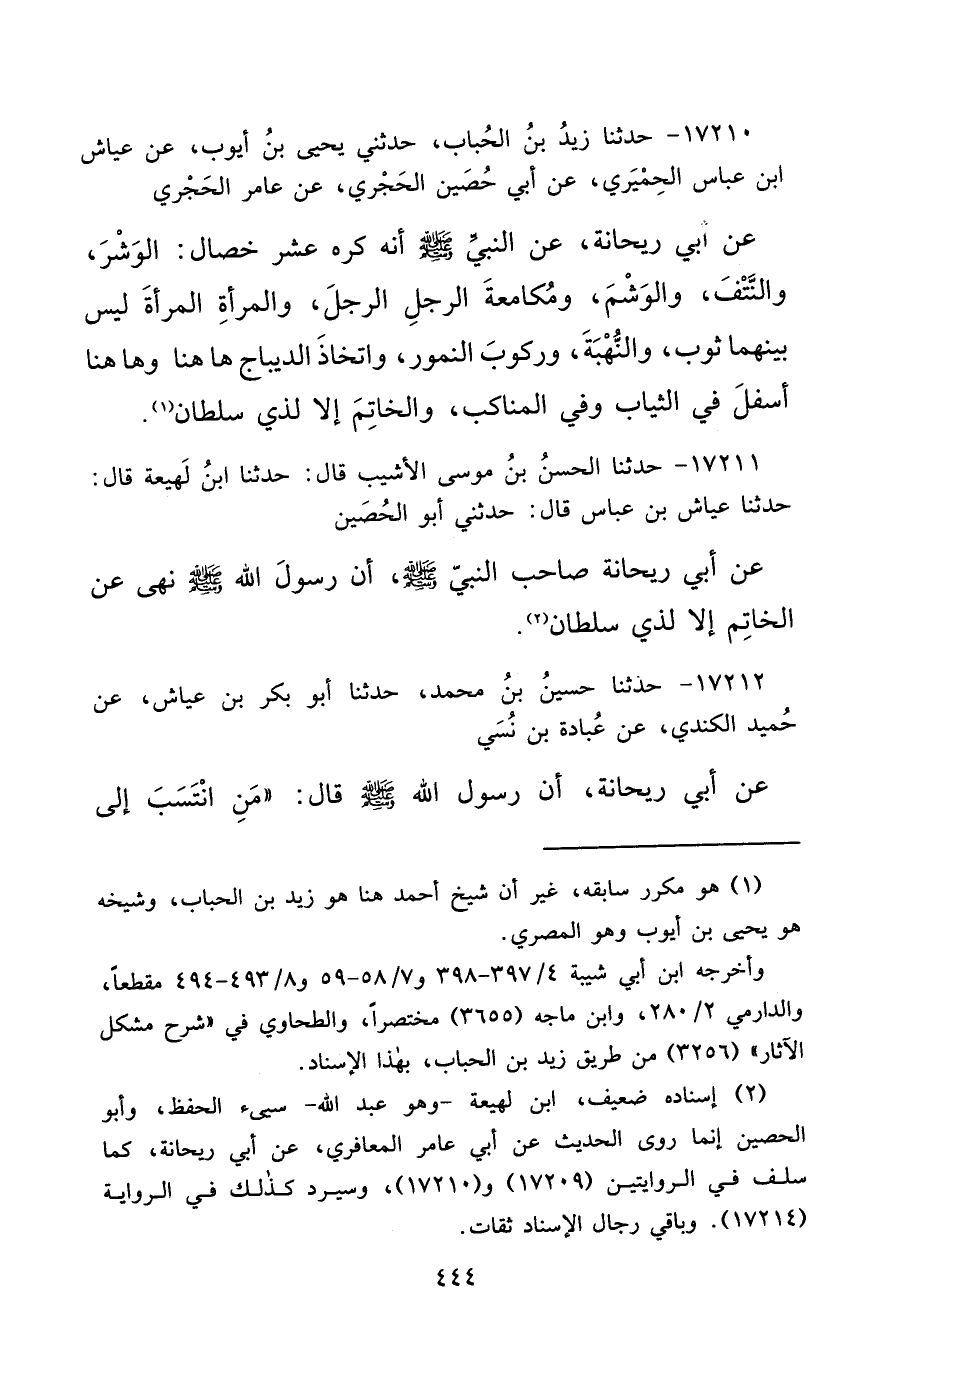 ١٧٢١٠- حدثنا زيدُ بنُ الحُباب، حدثني يحيى بنُ أيوب، عن عياش
ابن عباس الحِمْيَري، عن أبي حُصَين الحَجْري، عن عامر الحَجْري
عن أبي ريحانة، عن النبيِّ ﷺ أنه كره عشر خصال: الوَشْرَ،
والنَّتْفَ، والوَشْمَ، ومُكامعةَ الرجلِ الرجلَ، والمرأةِ المرأةَ ليس
بينهما ثوب، والنُّهْبَةَ، وركوبَ النمور، واتخاذَ الديباج ها هنا وها هنا
أسفلَ في الثياب وفي المناكب، والخاتِمَ إلا لذي سلطان(١).
١٧٢١١- حدثنا الحسنُ بنُ موسى الأشيب قال: حدثنا ابنُ لَهيعة قال:
حدثنا عياش بن عباس قال: حدثني أبو الحُصَين
عن أبي ريحانة صاحب النبيّ ﷺ، أن رسولَ الله ﷺ نهى عن
الخاتِم إلا لذي سلطان(٢).
١٧٢١٢- حدثنا حسينُ بنُ محمد، حدثنا أبو بكر بن عياش، عن
حُميد الكندي، عن عُبادة بن نُسَي
عن أبي ريحانة، أن رسول الله ﷺ قال: «مَنِ انْتَسَبَ إلى
(١) هو مكرر سابقه، غير أن شيخ أحمد هنا هو زيد بن الحباب، وشيخه
هو يحيى بن أيوب وهو المصري.
وأخرجه ابن أبي شيبة ٤/ ٣٩٧-٣٩٨ و٧/ ٥٨-٥٩ و٨/ ٤٩٣-٤٩٤ مقطعاً،
والدارمي ٢/ ٢٨٠، وابن ماجه (٣٦٥٥) مختصراً، والطحاوي في «شرح مشكل
الآثار» (٣٢٥٦) من طريق زيد بن الحباب، بهٰذا الإسناد.
(٢) إسناده ضعيف، ابن لهيعة -وهو عبد الله- سيىء الحفظ، وأبو
الحصين إنما روى الحديث عن أبي عامر المعافري، عن أبي ريحانة، كما
سلف في الروايتين (١٧٢٠٩) و(١٧٢١٠)، وسيرد كذٰلك في الرواية
(١٧٢١٤). وباقي رجال الإسناد ثقات.
٤٤٤